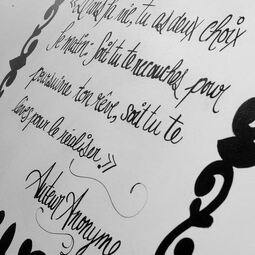 «Dans la vie, tu as deux choix
le matin: Soit tu te recouches pour
poursuivre ton rêve, soit tu te
lèves pour le réaliser.»
Auteur Anonyme